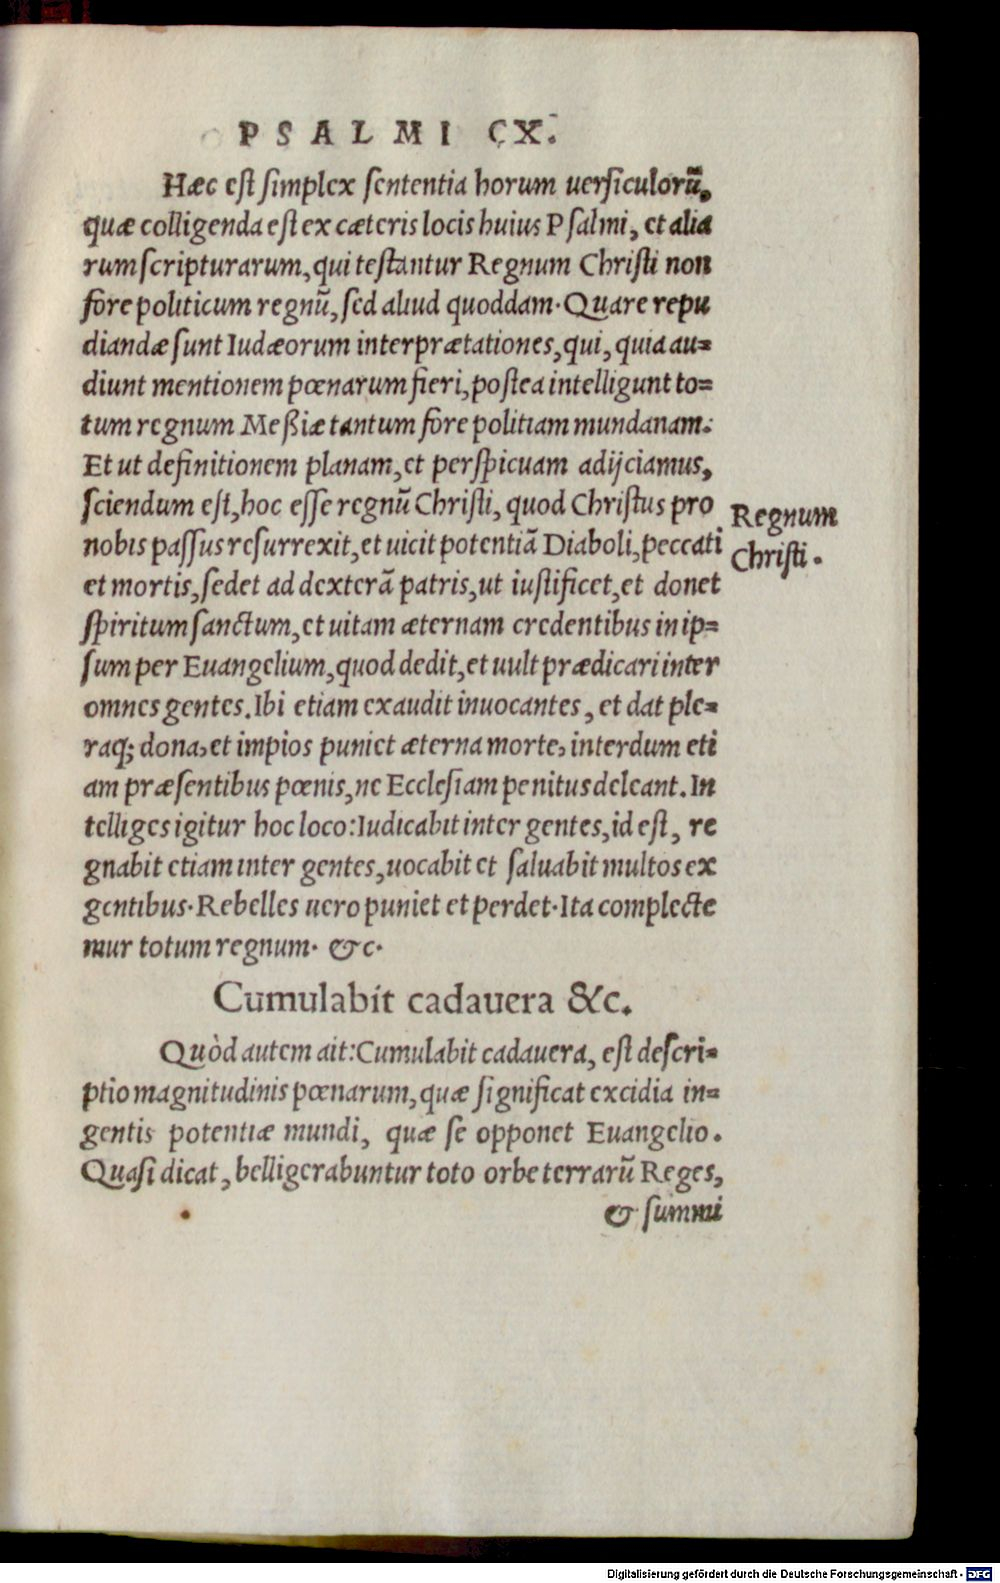 PSALMI CX.
Hæc est simplex sententia horum uersiculorũ,
quæ colligenda est ex cæteris locis huius Psalmi, et alia
rum scripturarum, qui testantur Regnum Christi non
fore politicum regnũ, sed aliud quoddam. Quare repu
diandæ sunt Iudæorum interprætationes, qui, quia au=
diunt mentionem pœnarum fieri, postea intelligunt to=
tum regnum Meßiæ tantum fore politiam mundanam.
Et ut definitionem planam, et perspicuam adijciamus,
sciendum est, hoc esse regnũ Christi, quod Christus pro
nobis passus resurrexit, et uicit potentiã Diaboli, peccati
et mortis, sedet ad dexterã patris, ut iustificet, et donet
spiritum sanctum, et uitam æternam credentibus in ip=
sum per Euangelium, quod dedit, et uult prædicari inter
omnes gentes. Ibi etiam exaudit inuocantes, et dat ple=
raq; dona, et impios puniet æterna morte, interdum eti
am præsentibus pœnis, ne Ecclesiam penitus deleant. In
telliges igitur hoc loco: Iudicabit inter gentes, id est, re
gnabit etiam inter gentes, uocabit et saluabit multos ex
gentibus. Rebelles uero puniet et perdet. Ita complecte
mur totum regnum. &c.
Regnum
Christi.
Cumulabit cadauera &c.
Quòd autem ait: Cumulabit cadauera, est descri=
ptio magnitudinis pœnarum, quæ significat excidia in=
gentis potentiæ mundi, quæ se opponet Euangelio.
Quasi dicat, belligerabuntur toto orbe terrarũ Reges,
& summi
Digitalisierung gefördert durch die Deutsche Forschungsgemeinschaft - DFG